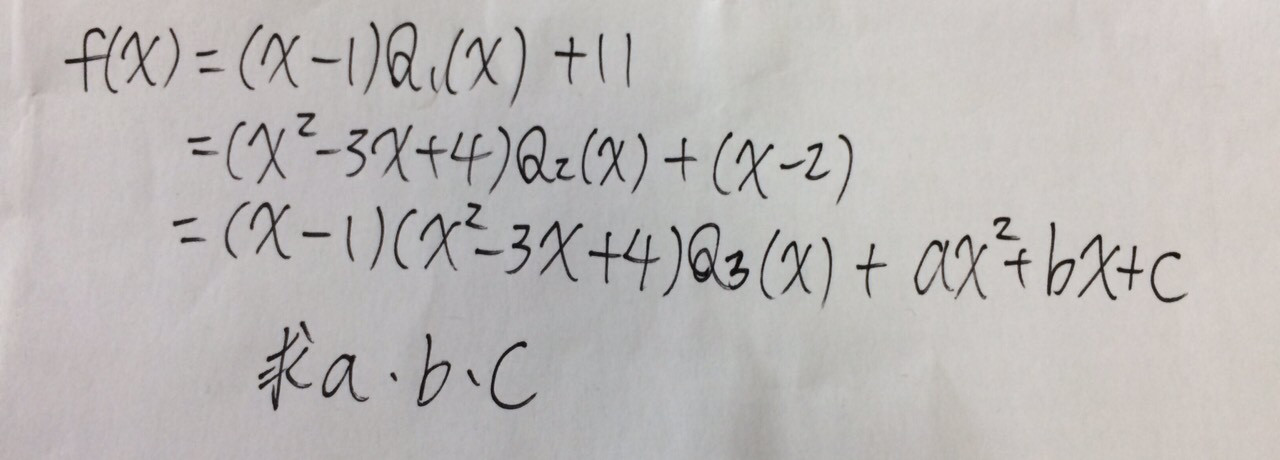 f(x)=(x-1)Q₁(x)+11
=(x²-3x+4)Q₂(x)+(x-2)
=(x-1)(x²-3x+4)Q₃(x)+ax²+bx+c
求a.b、c